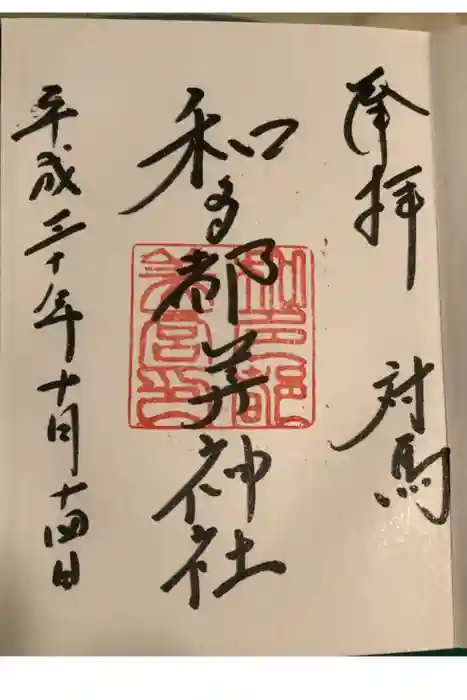 奉拝　対馬
和多都美神社
平成三十年十月十四日